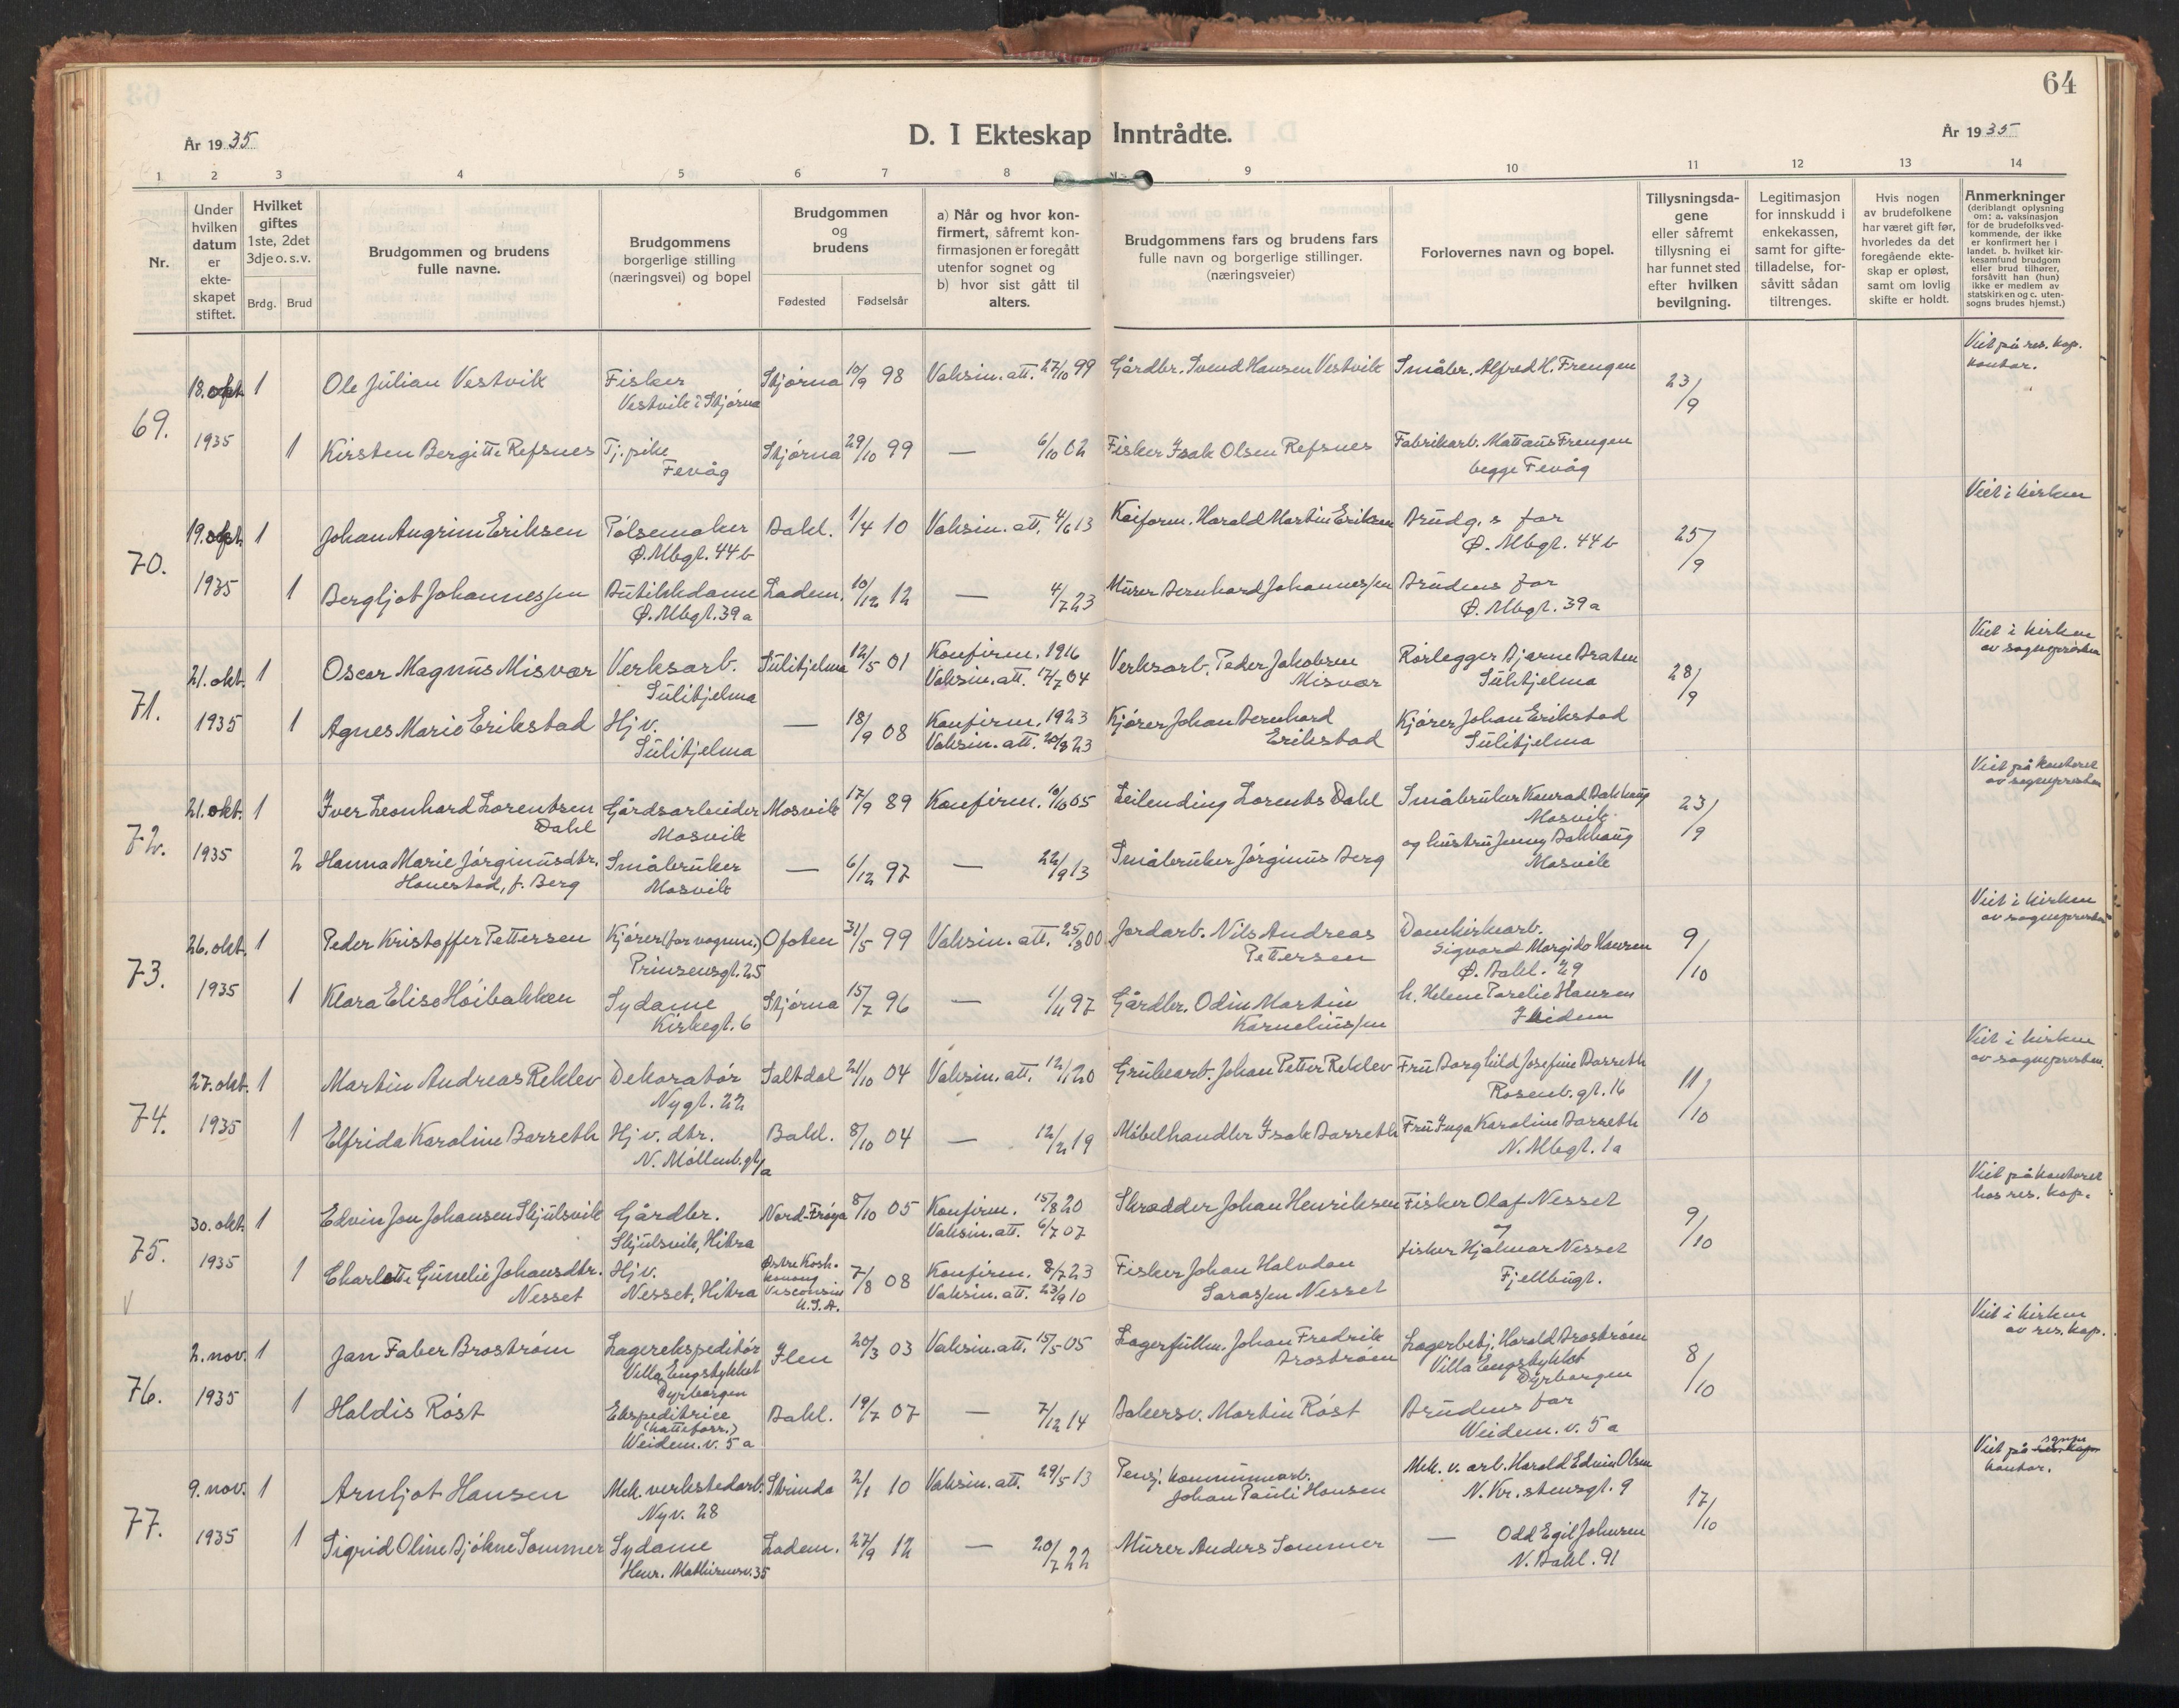 64
År 1935
D. I Ekteskap Inntrådte.
År 1935
1 2 3 4 5 6 7 8 9 10 11 12 13 14
Nr.
Under hvilken datum er ekteskapet stiftet.
Hvilket giftes 1ste, 2det 3dje o. s. v.
Brdg. Brud
Brudgommen og brudens fulle navne.
Brudgommens borgerlige stilling (næringsvei) og bopel
Brudgommen og brudens
Fødested Fødselsår
a) Når og hvor konfirmert, såfremt konfirmasjonen er foregått utenfor sognet og b) hvor sist gått til alters.
Brudgommens fars og brudens fars fulle navn og borgerlige stillinger. (næringsveier)
Forlovernes navn og bopel.
Tillysningsdagene eller såfremt tillysning ei har funnet sted efter hvilken bevilgning.
Legitimasjon for innskudd i enkekassen, samt for giftetilladelse, forsåvitt sådan tiltrenges.
Hvis nogen av brudefolkene har været gift før, hvorledes da det foregående ekteskap er opløst, samt om lovlig skifte er holdt.
Anmerkninger (deriblandt oplysning om: a. vaksinasjon for de brudefolksvedkommende, der ikke er konfirmert her i landet. b. hvilket kirkesamfund brudgom eller brud tilhører, forsåvitt han (hun) ikke er medlem av statskirken og c. utensogns brudes hjemst.)
69.
18. okt. 1 Ole Julian Vestvik Fisker Vestvik i Stjørna Stjørna 10/9 98 Vaksin. att. 27/10 99 Gårdbr. Svend Hansen Vestvik Småbr. Alfred H. Frengen 23/9 Viet på res. kap. kontor.
1935 1 Kirsten Bergitte Refsnes Tj. pike Fevåg Stjørna 29/10 99 — 6/10 02 Fisker Isak Olsen Refsnes Fabrikarb. Mattæus Frengen begge Fevåg
70.
19. okt. 1 Johan Angrim Eriksen Pølsemaker Ø. Mbgt. 44 b Bakl. 1/4 10 Vaksin. att. 4/6 13 Kaiform. Harald Martin Eriksen Brudg.s far Ø. Mbgt. 44 b 25/9 Viet i kirken
1935 1 Bergljot Johannessen Butikkdame Ø. Mbgt. 39 a Ladem. 10/12 12 — 4/7 23 Murer Bernhard Johannessen Brudens far Ø. Mbgt. 39 a
71.
21. okt. 1 Oscar Magnus Misvær Verksarb. Sulitjelma Sulitjelma 12/5 01 Konfirm. 1916 Vaksin. att. 17/7 04 Verksarb. Peder Jakobsen Misvær Rørlegger Bjarne Braten Sulitjelma 28/9 Viet i kirken av sognepresten
1935 1 Agnes Marie Erikstad Hj v. Sulitjelma — 18/9 08 Konfirm. 1923 Vaksin. att. 20/8 23 Kjører Johan Bernhard Erikstad Kjører Johan Erikstad Sulitjelma
72.
21. okt. 1 Iver Leonhard Lorentsen Dahl Gårdsarbeider Mosvik Mosvik 17/9 89 Konfirm. 10/10 05 Leilending Lorents Dahl Småbruker Konrad Dahlhaug Mosvik 23/9 Viet på kontoret av sognepresten
1935 2 Hanna Marie Jørginusdtr. Honestad, f. Berg Småbruker Mosvik — 6/12 97 — 22/9 13 Småbruker Jørginus Berg og hustru Jenny Dahlhaug Mosvik
73.
26. okt. 1 Peder Kristoffer Pettersen Kjører (for vognm.) Prinsensgt. 25 Ofoten 31/5 99 Vaksin. att. 25/8 00 Jordarb. Nils Andreas Pettersen Domkirkearb. Sigvard Margido Hansen Ø. Bakl. 29 9/10 Viet i kirken av sognepresten
1935 1 Klara Elise Høibakken Sydame Kirkegt. 6 Stjørna 15/7 96 — 1/11 97 Gårdbr. Odin Martin Korneliussen h. Helene Torelie Hansen Ibidem
74.
27. okt. 1 Martin Andreas Reklev Dekoratør Nygt. 22 Saltdal 21/10 04 Vaksin. att. 12/1 20 Grubearb. Johan Petter Reklev Fru Borghild Josefine Barreth Rosenb. gt. 16 11/10 Viet i kirken av sognepresten.
1935 1 Elfrida Karoline Barreth Hj v. dtr. N. Møllenb. gt. 1a Bakl. 8/10 04 — 12/2 19 Møbelhandler Isak Barreth Fru Inga Karoline Barreth N. Mbgt. 1a
75.
30. okt. 1 Edvin Jon Johansen Skjulsvik Gårdbr. Skjulsvik, Hitra Nord-Frøya 8/10 05 Konfirm. 15/8 20 Vaksin. att. 6/7 07 Skrædder Johan Henriksen Fisker Olaf Nesset 9/10 Viet på kontoret hos res. kap.
1935 1 Charlotte Gunelie Johansdtr. Nesset Hj v. Nesset, Hitra Visconsin U.S.A. 7/8 08 Konfirm. 8/7 23 Vaksin. att. 23/9 10 Fisker Johan Halvdan Larassen Nesset og fisker Hjalmar Nesset Fjellbugt.
V
76.
2. nov. 1 Jan Faber Brostrøm Lagerekspeditør Villa Engstykket Dyrborgen Ilen 20/3 03 Vaksin. att. 15/5 05 Lagerfullm. Johan Fredrik Brostrøm Lagerbetj. Harald Brostrøm Villa Engstykket Dyrborgen 8/10 Viet i kirken av res. kap.
1935 1 Haldis Røst Ekspeditrice (hatteforr.) Weidem. v. 5 a Bakl. 19/7 07 — 7/12 14 Bakersv. Martin Røst Brudens far Weidem. v. 5 a
77.
9. nov. 1 Arnljot Hansen Mek. verkstedarb. Nyv. 28 Strinda 2/1 10 Vaksin. att. 29/5 13 Pensj. kommunearb. Johan Pauli Hansen Mek. v. arb. Harald Edwin Olsen N. Kr. stensgt. 9 17/10 Viet på sognepr. kontor.
1935 1 Sigrid Oline Bjøkne Sommer Sydame Henr. Mathiesensv. 35 Ladem. 27/9 12 — 20/7 22 Murer Anders Sommer — Odd Egil Johnsen N. Bakl. 91